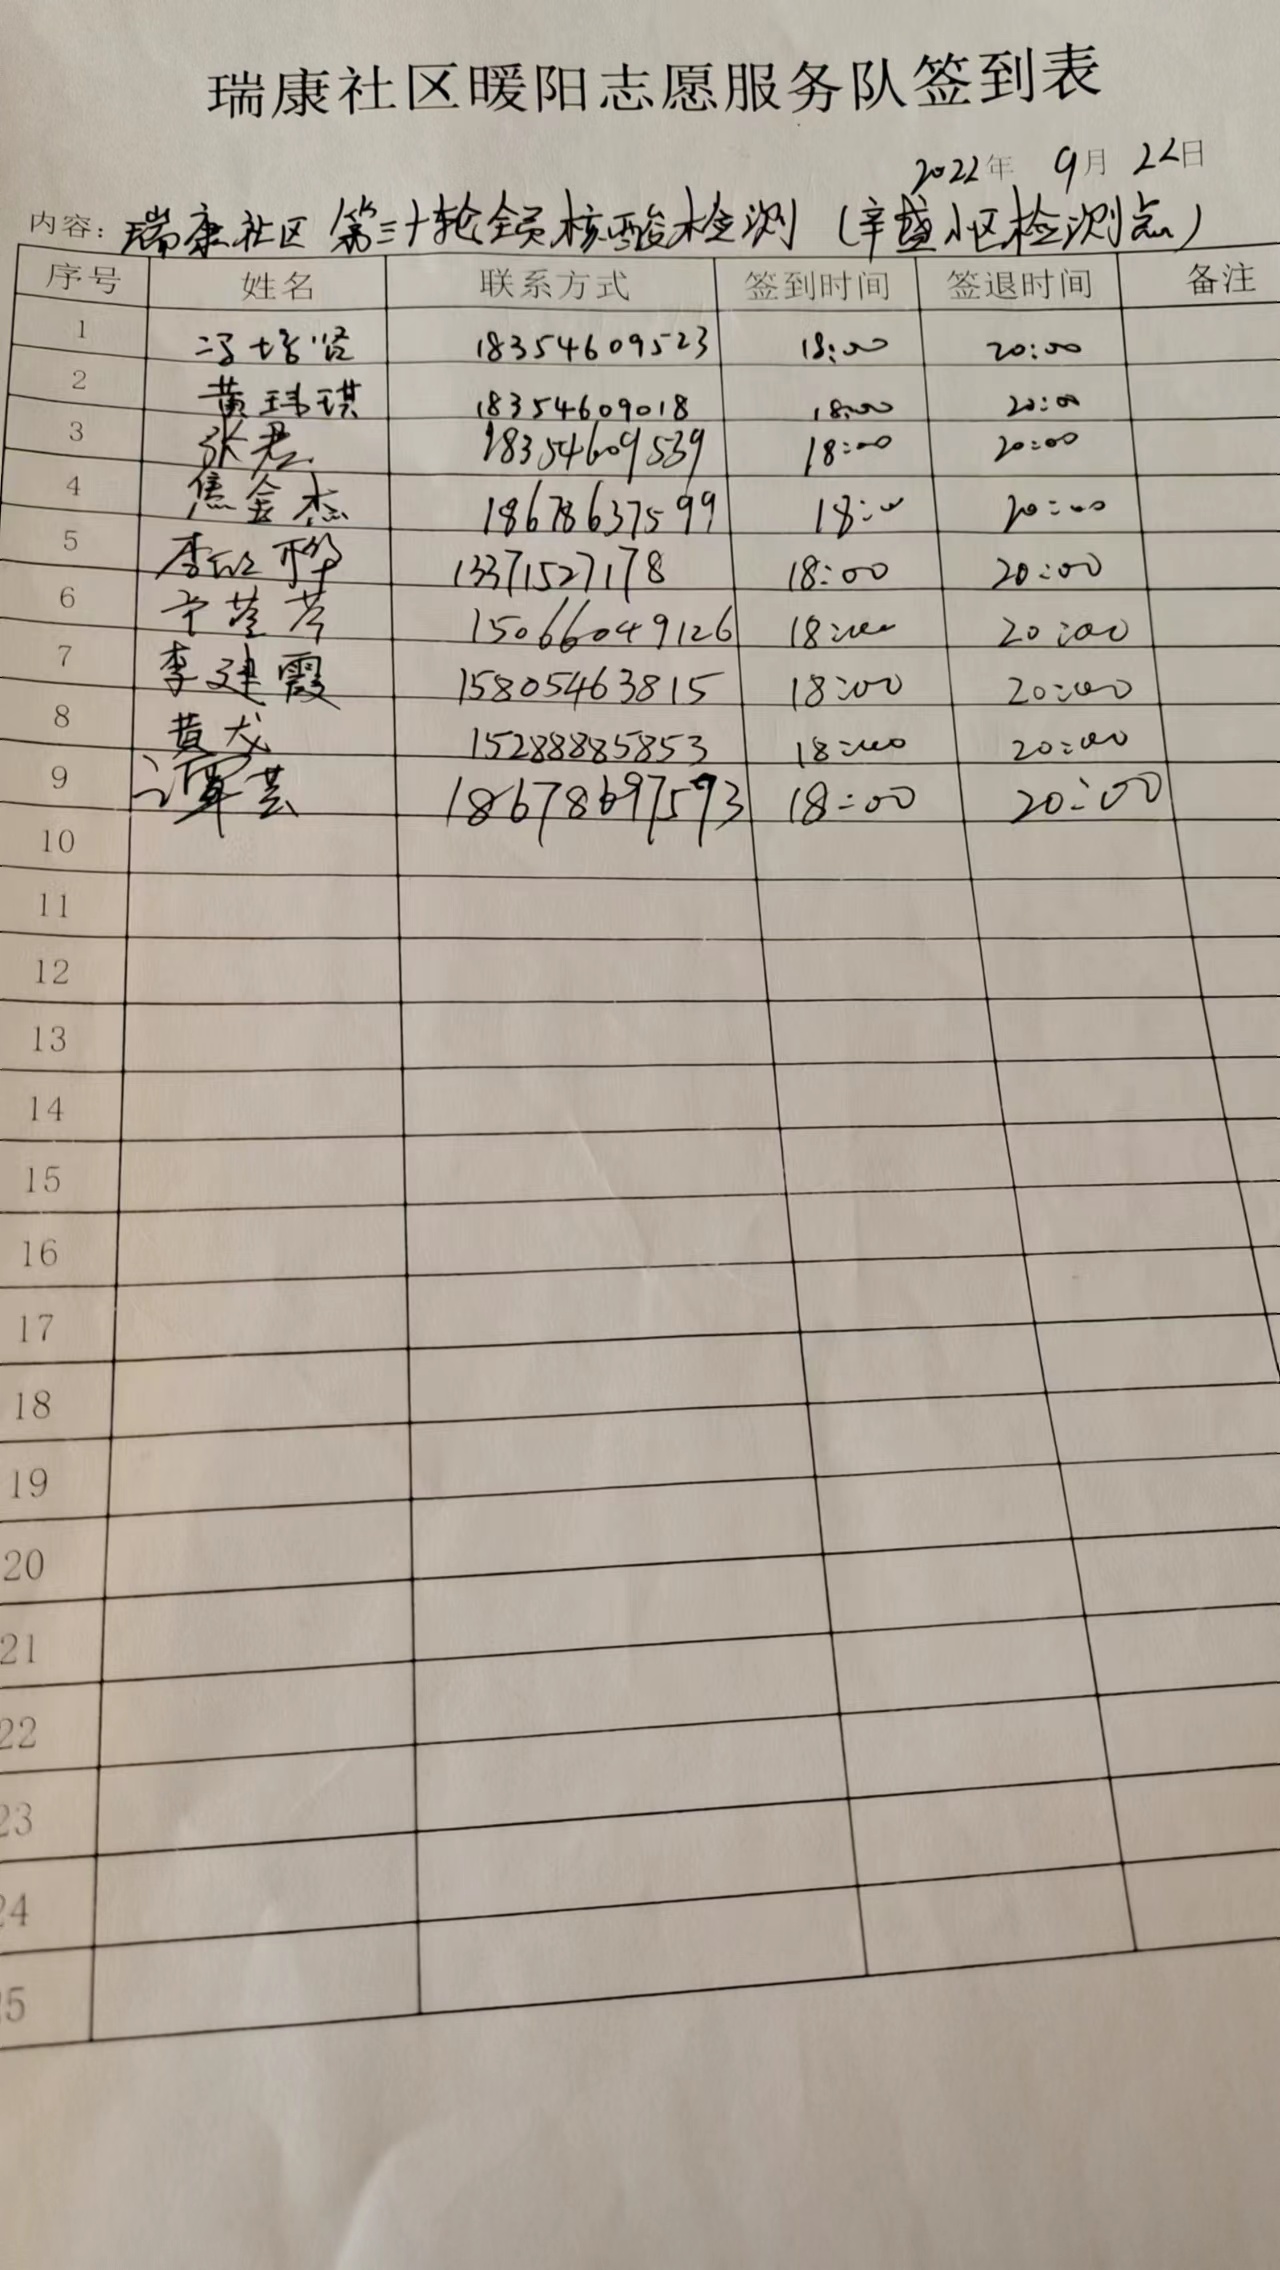 瑞康社区暖阳志愿服务队签到表
2022年 9月 22日
内容: 瑞康社区第三十轮全员核酸检测(辛盛小区检测点)
序号 姓名 联系方式 签到时间 签退时间 备注
1 冯培贤 18354609523 18:00 20:00
2 黄玮琪 18354609018 18:00 20:00
3 张君 18354609539 18:00 20:00
4 焦金杰 18678637599 18:00 20:00
5 李 13371527178 18:00 20:00
6 15066049126 18:00 20:00
7 李建霞 15805463815 18:00 20:00
8 黄 15288885853 18:00 20:00
9 18678697593 18:00 20:00
10
11
12
13
14
15
16
17
18
19
20
21
22
23
24
25